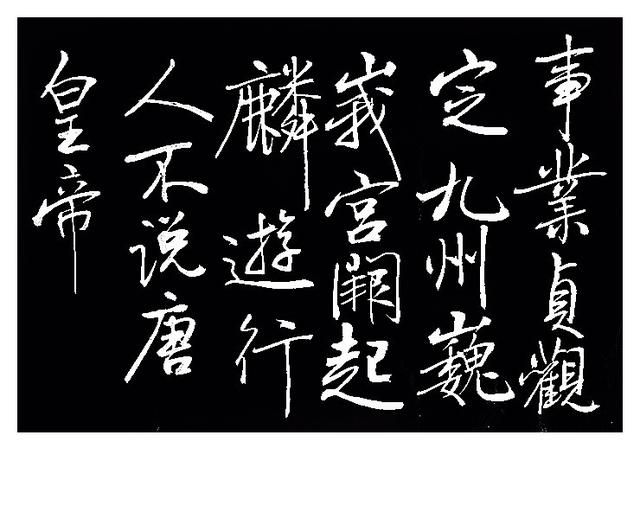 事業貞觀
定九州巍
峩宮闕起
麟遊行
人不说唐
皇帝